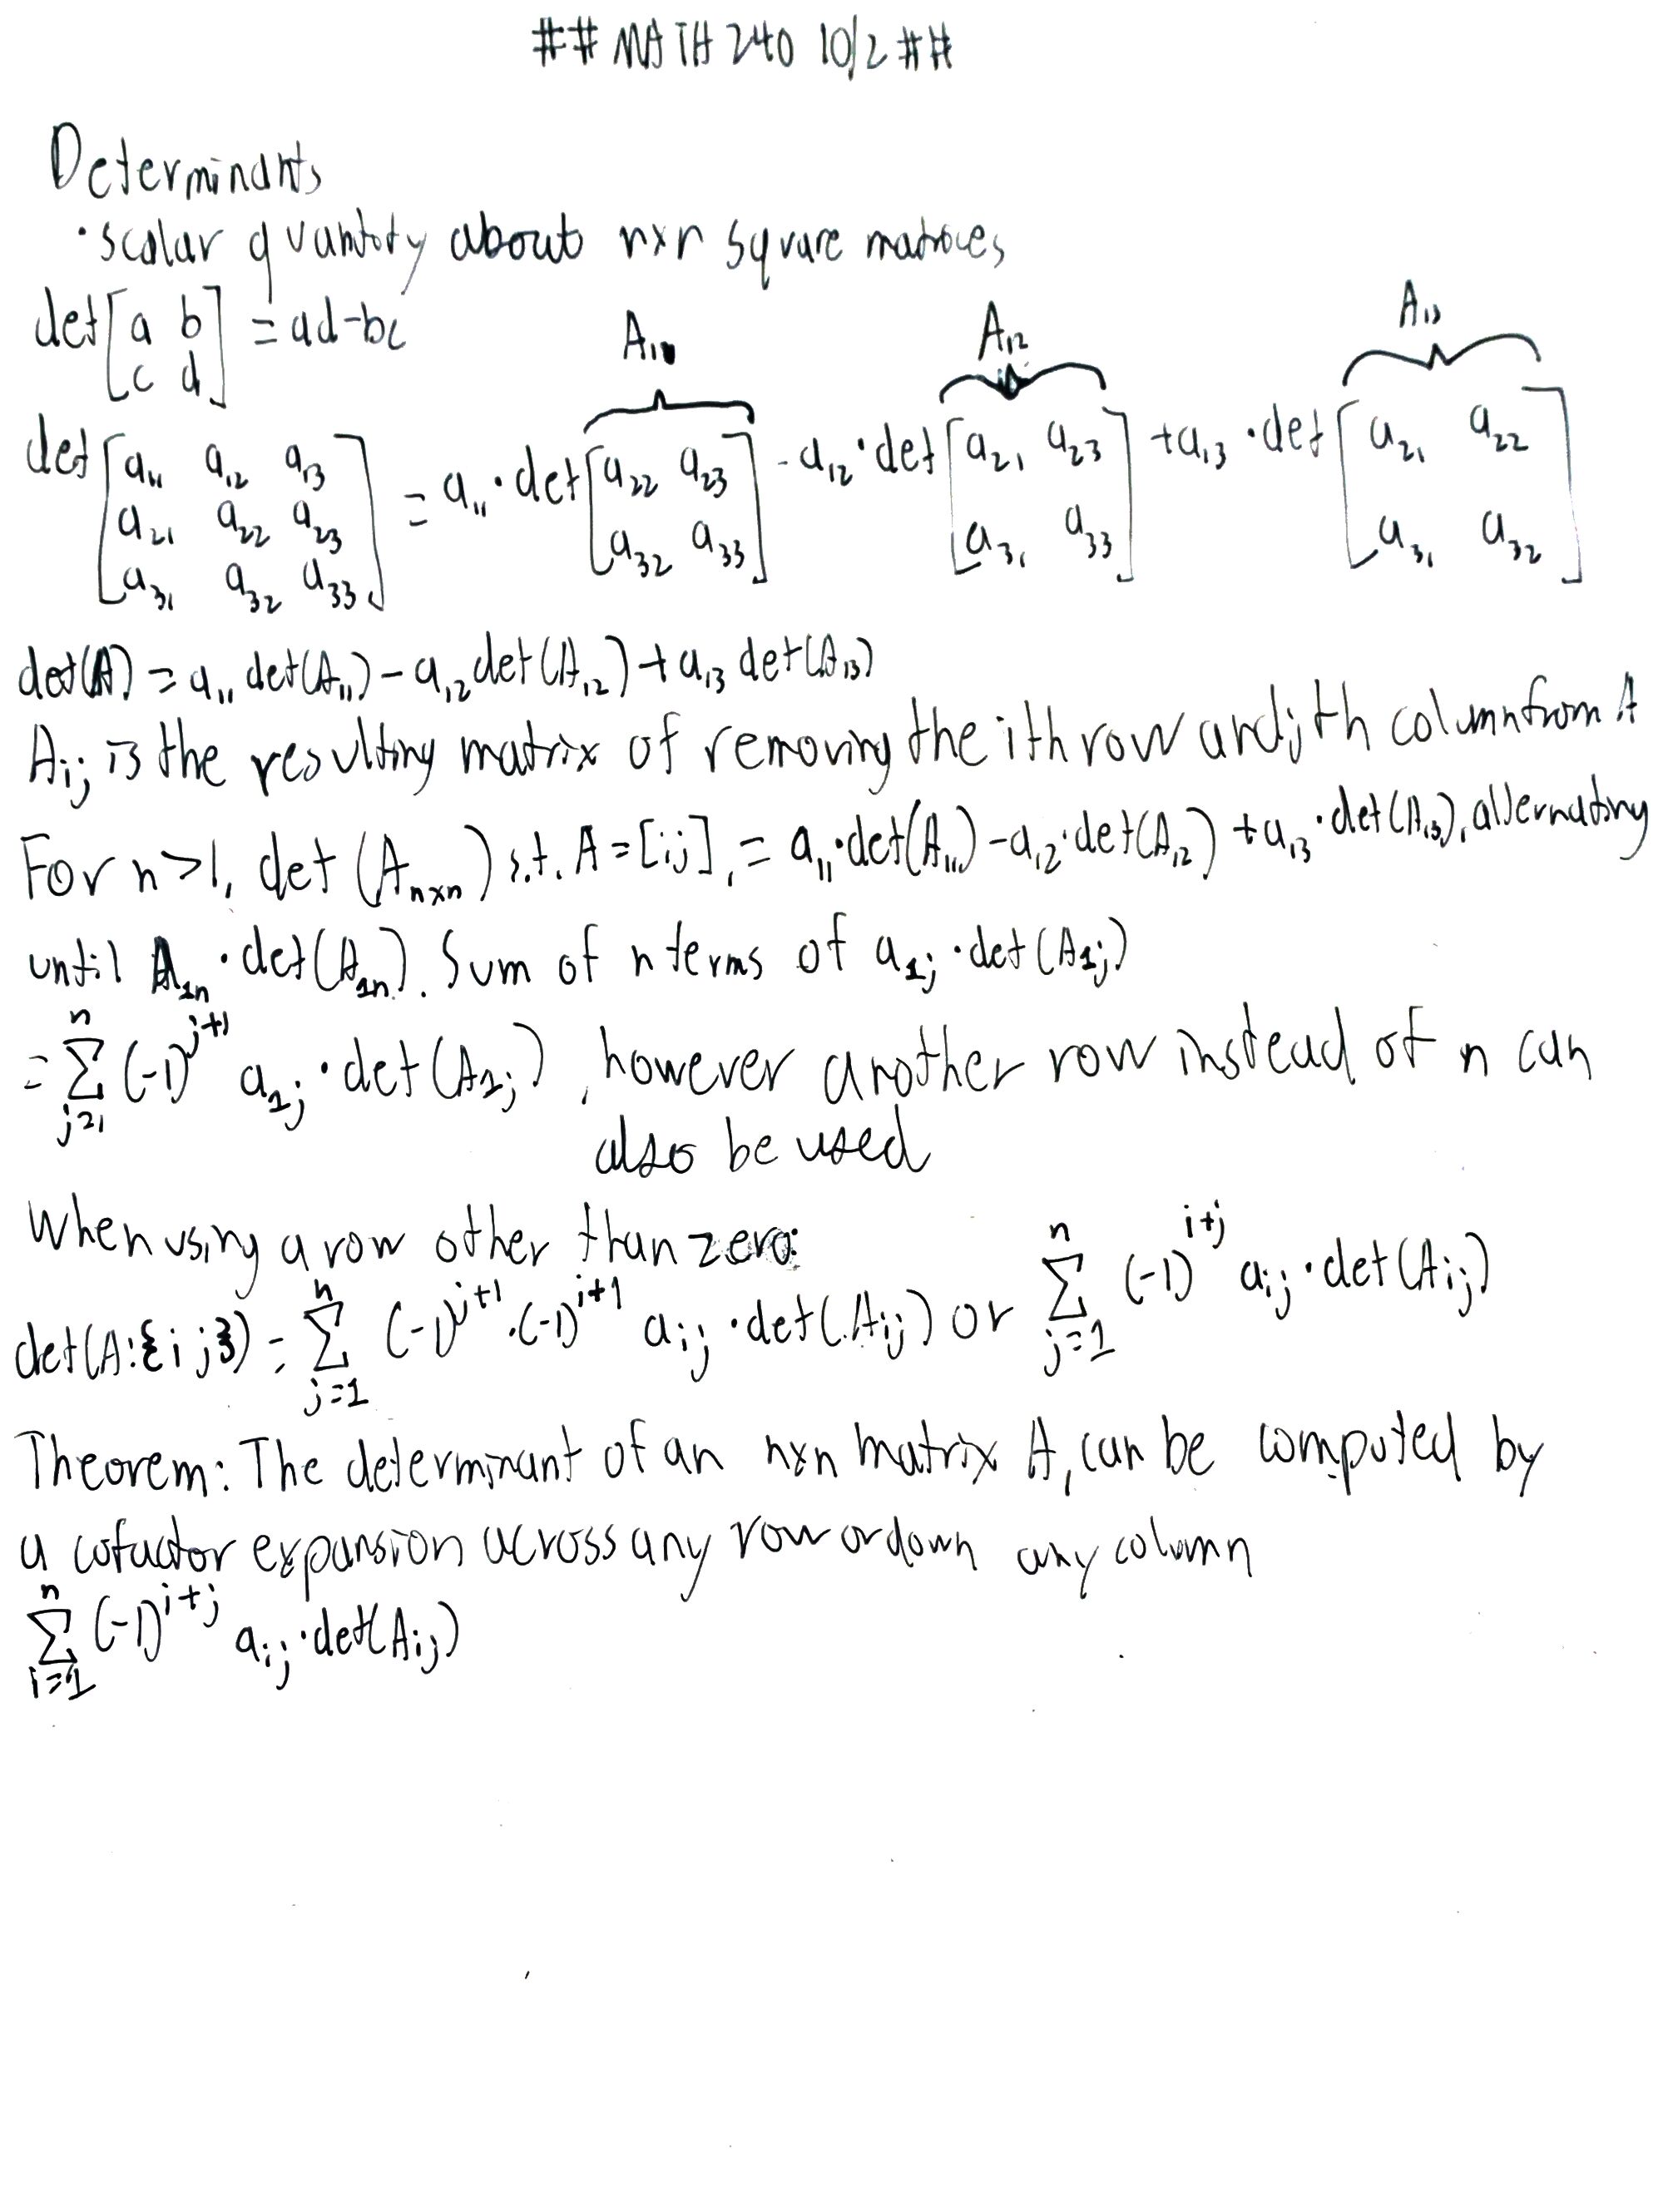 ## MATH 240 10/2 ##
Determinants
· scalar quantity about nxn square matrices
det[a b; c d] = ad-bc
A₁₁ A₁₂ A₁₃
det[a₁₁ a₁₂ a₁₃; a₂₁ a₂₂ a₂₃; a₃₁ a₃₂ a₃₃] = a₁₁·det[a₂₂ a₂₃; a₃₂ a₃₃] - a₁₂·det[a₂₁ a₂₃; a₃₁ a₃₃] + a₁₃·det[a₂₁ a₂₂; a₃₁ a₃₂]
det(A) = a₁₁ det(A₁₁) - a₁₂ det(A₁₂) + a₁₃ det(A₁₃)
Aij is the resulting matrix of removing the ith row and jth column from A
For n>1, det (Anxn) s.t. A=[ij], = a₁₁·det(A₁₁) - a₁₂·det(A₁₂) + a₁₃·det(A₁₃), alternating
until A₁n·det(A₁n). Sum of n terms of a₁j·det(A₁j)
= Σ_{j=1}^{n} (-1)^{j+1} a₁j·det(A₁j), however another row instead of n can
also be used
When using a row other than zero:
det(A:{ij}) = Σ_{j=1}^{n} (-1)^{j+1}·(-1)^{i+1} aij·det(Aij) or Σ_{j=1}^{n} (-1)^{i+j} aij·det(Aij)
Theorem: The determinant of an nxn matrix A, can be computed by
a cofactor expansion across any row or down any column
Σ_{i=1}^{n} (-1)^{i+j} aij·det(Aij)